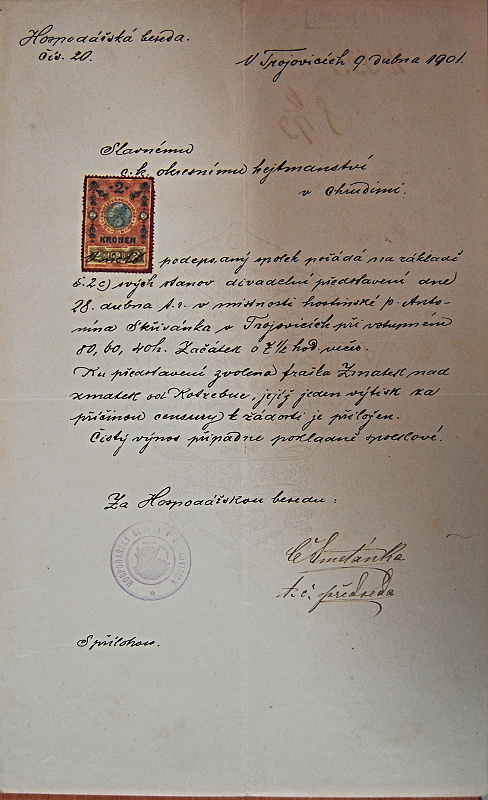 Hospodářská beseda.
Čís. 20.
V Trojovicích 9 dubna 1901.
Slavnému
c. k. okresnímu hejtmanství
v Chrudimi.
2
KRONEN
podepsaný spolek pořádá na základě
§. 2 c) svých stanov divadelní představení dne
28. dubna t. r. v místnosti hostinské p. Anto-
nína Skřivánka v Trojovicích při vstupném
80, 60, 40 h. Začátek o 7 1/2 hod. večer.
Ku představení zvolena fraška Zmatek nad
zmatek od Kotzebue, jejíž jeden výtisk za
příčinou censury k žádosti je přiložen.
Čistý výnos připadne pokladně spolkové.
Za Hospodářskou besedu:
HOSPODÁŘSKÁ
Č Smetánka
t. č. předseda
S přílohou.